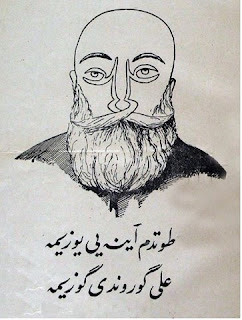 طوتدم آینه یی یوزیمه
علی گوروندی گوزیمه